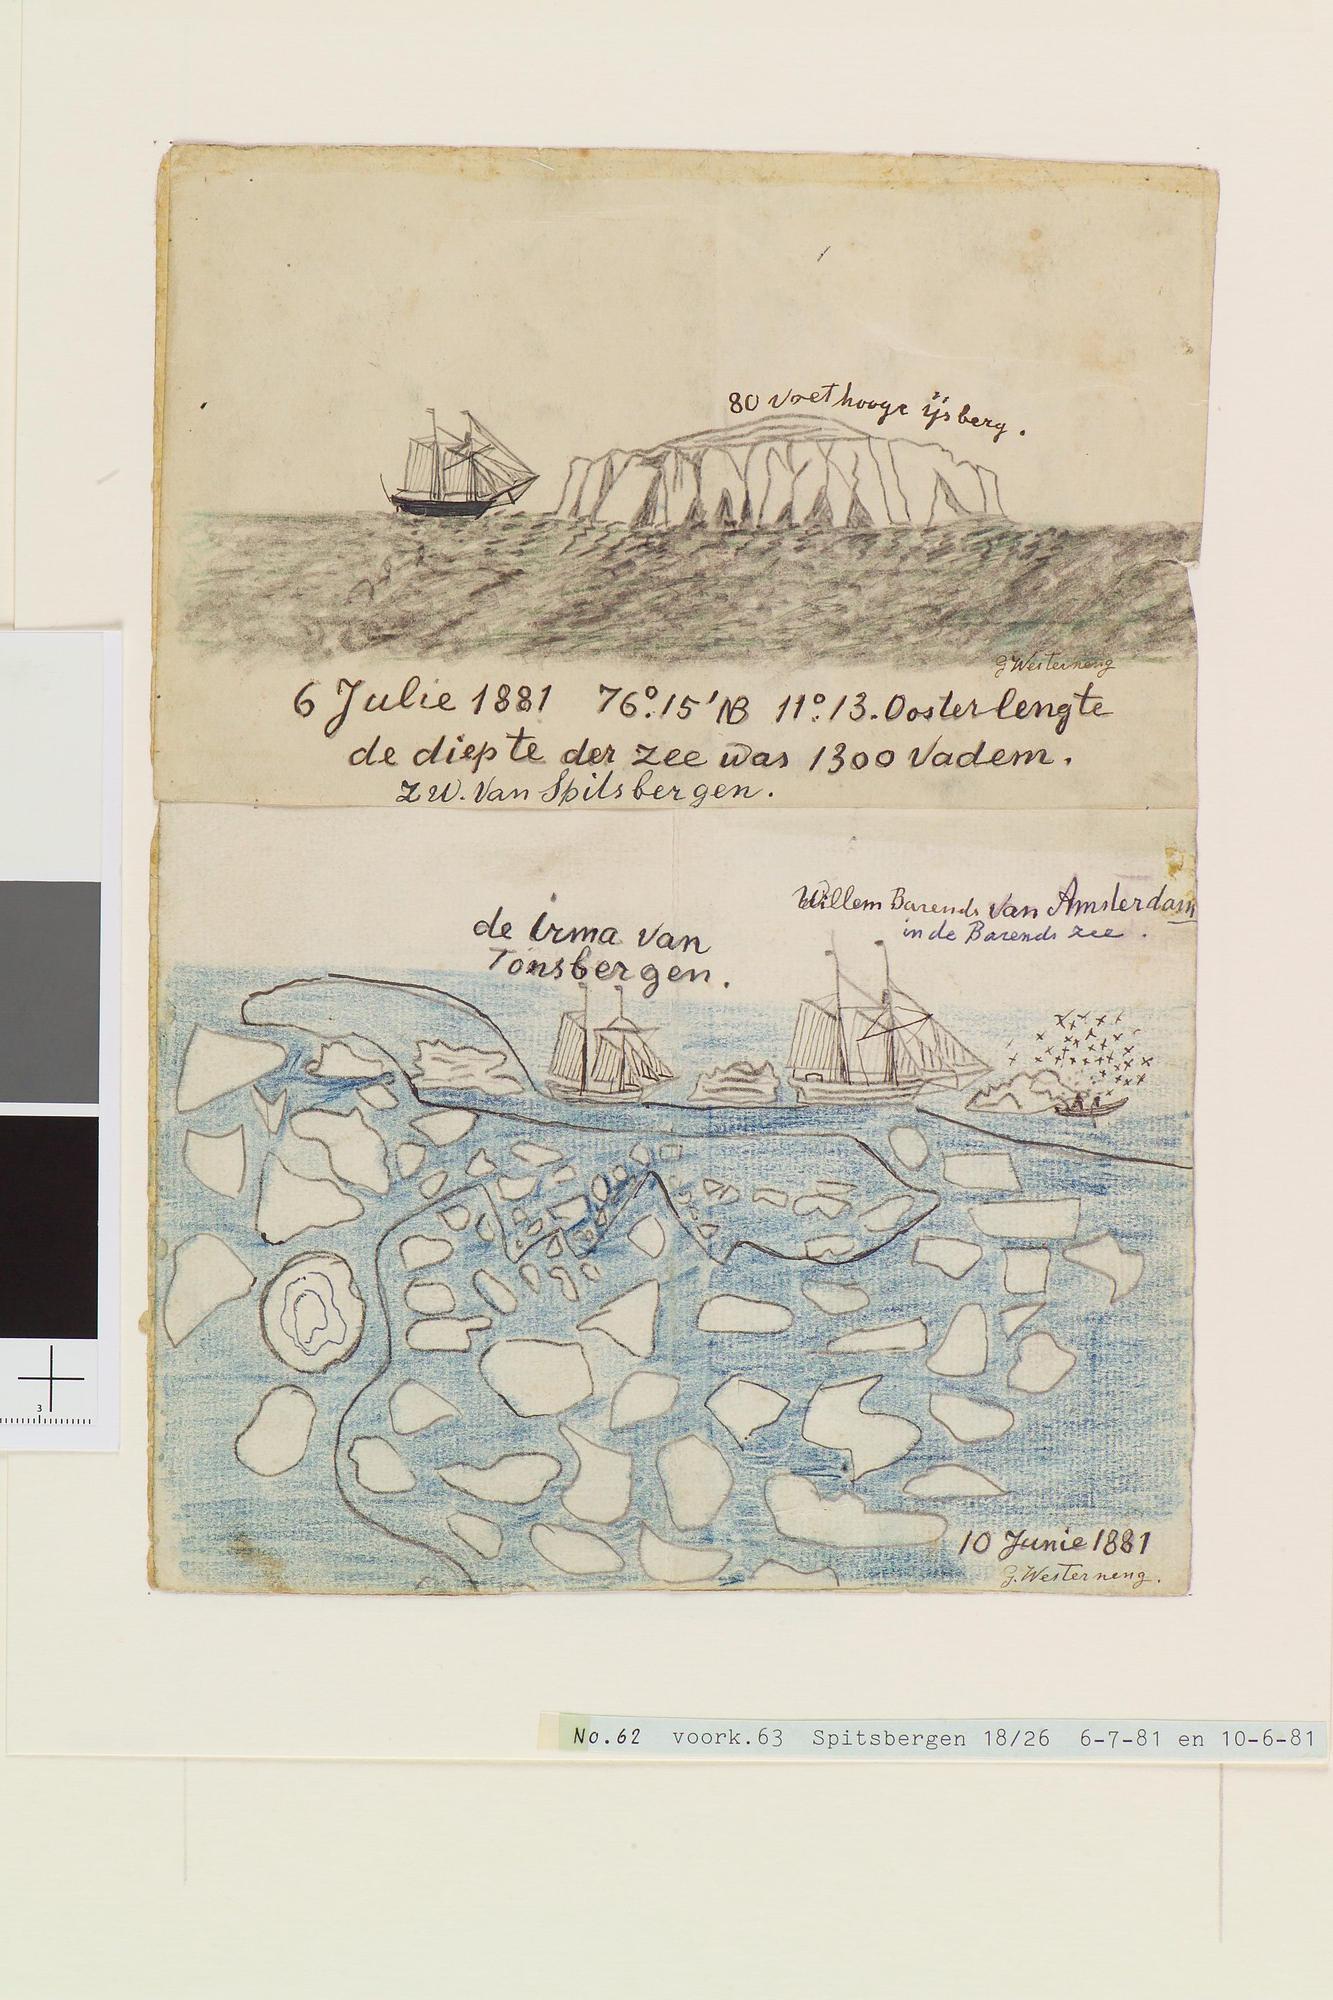 80 voet hooge ijsberg.
G Westerneng
6 Julie 1881 76°.15' NB 11°.13. Ooster lengte
de diepte der zee was 1300 Vadem.
Z W. Van Spitsbergen.
Willem Barends van Amsterdam
in de Barends zee.
de Irma van
Tonsbergen.
10 Junie 1881
G. Westerneng.
No.62 voork.63 Spitsbergen 18/26 6-7-81 en 10-6-81
3